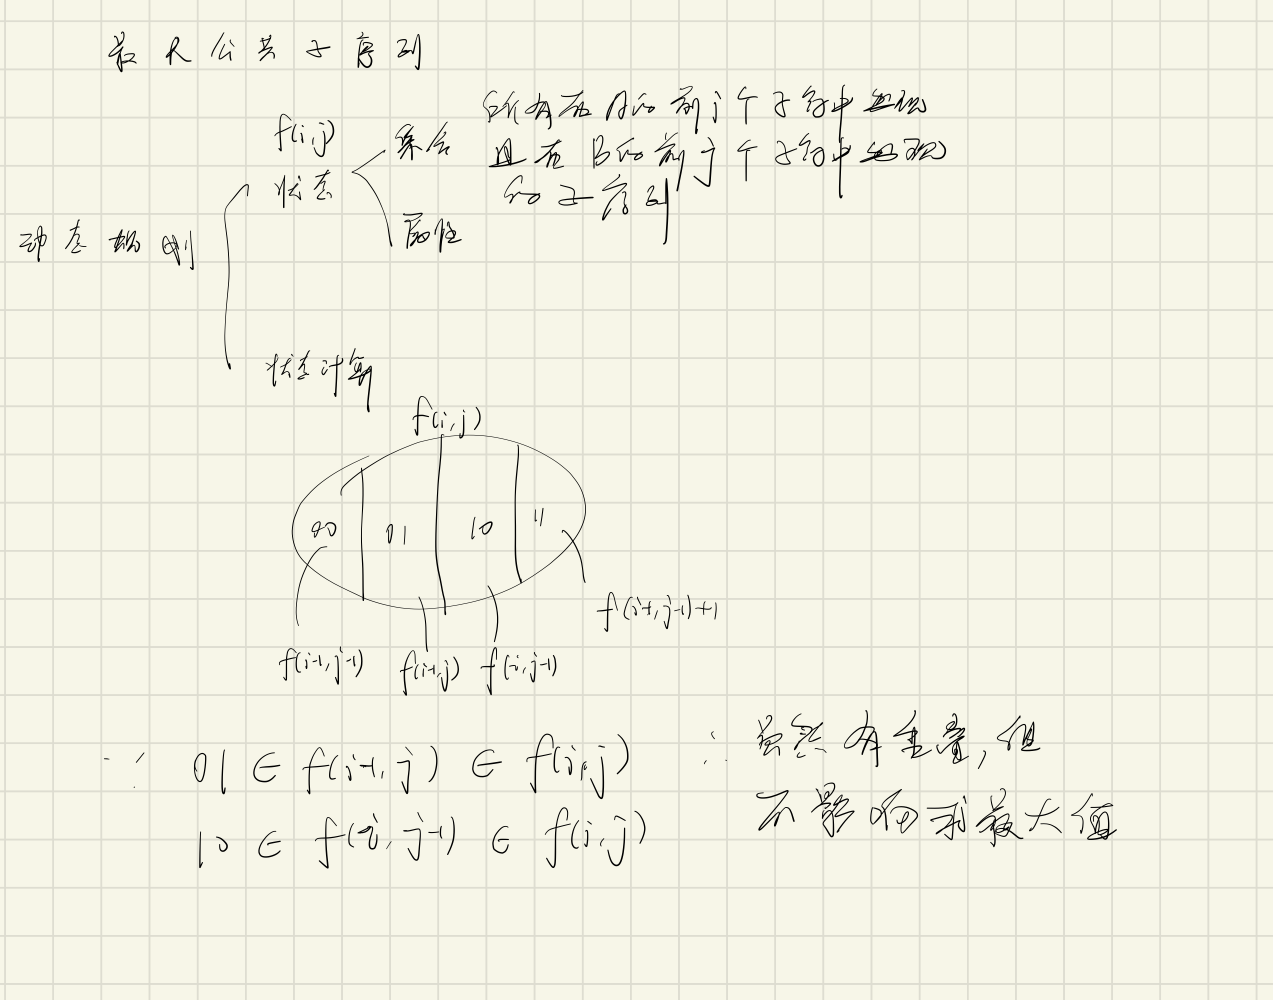 最长公共子序列
所有在A的前i个子符中出现
f(i,j) 集合 且在B的前j个子符中出现
状态 的子序列
动态规划 属性
状态计算
f(i,j)
00 01 10 11
f(i-1,j-1)+1
f(i-1,j-1) f(i-1,j) f(i,j-1)
∵ 01 ∈ f(i-1,j) ∈ f(i,j) ∴ 虽然有重叠,但
10 ∈ f(i,j-1) ∈ f(i,j) 不影响求最大值